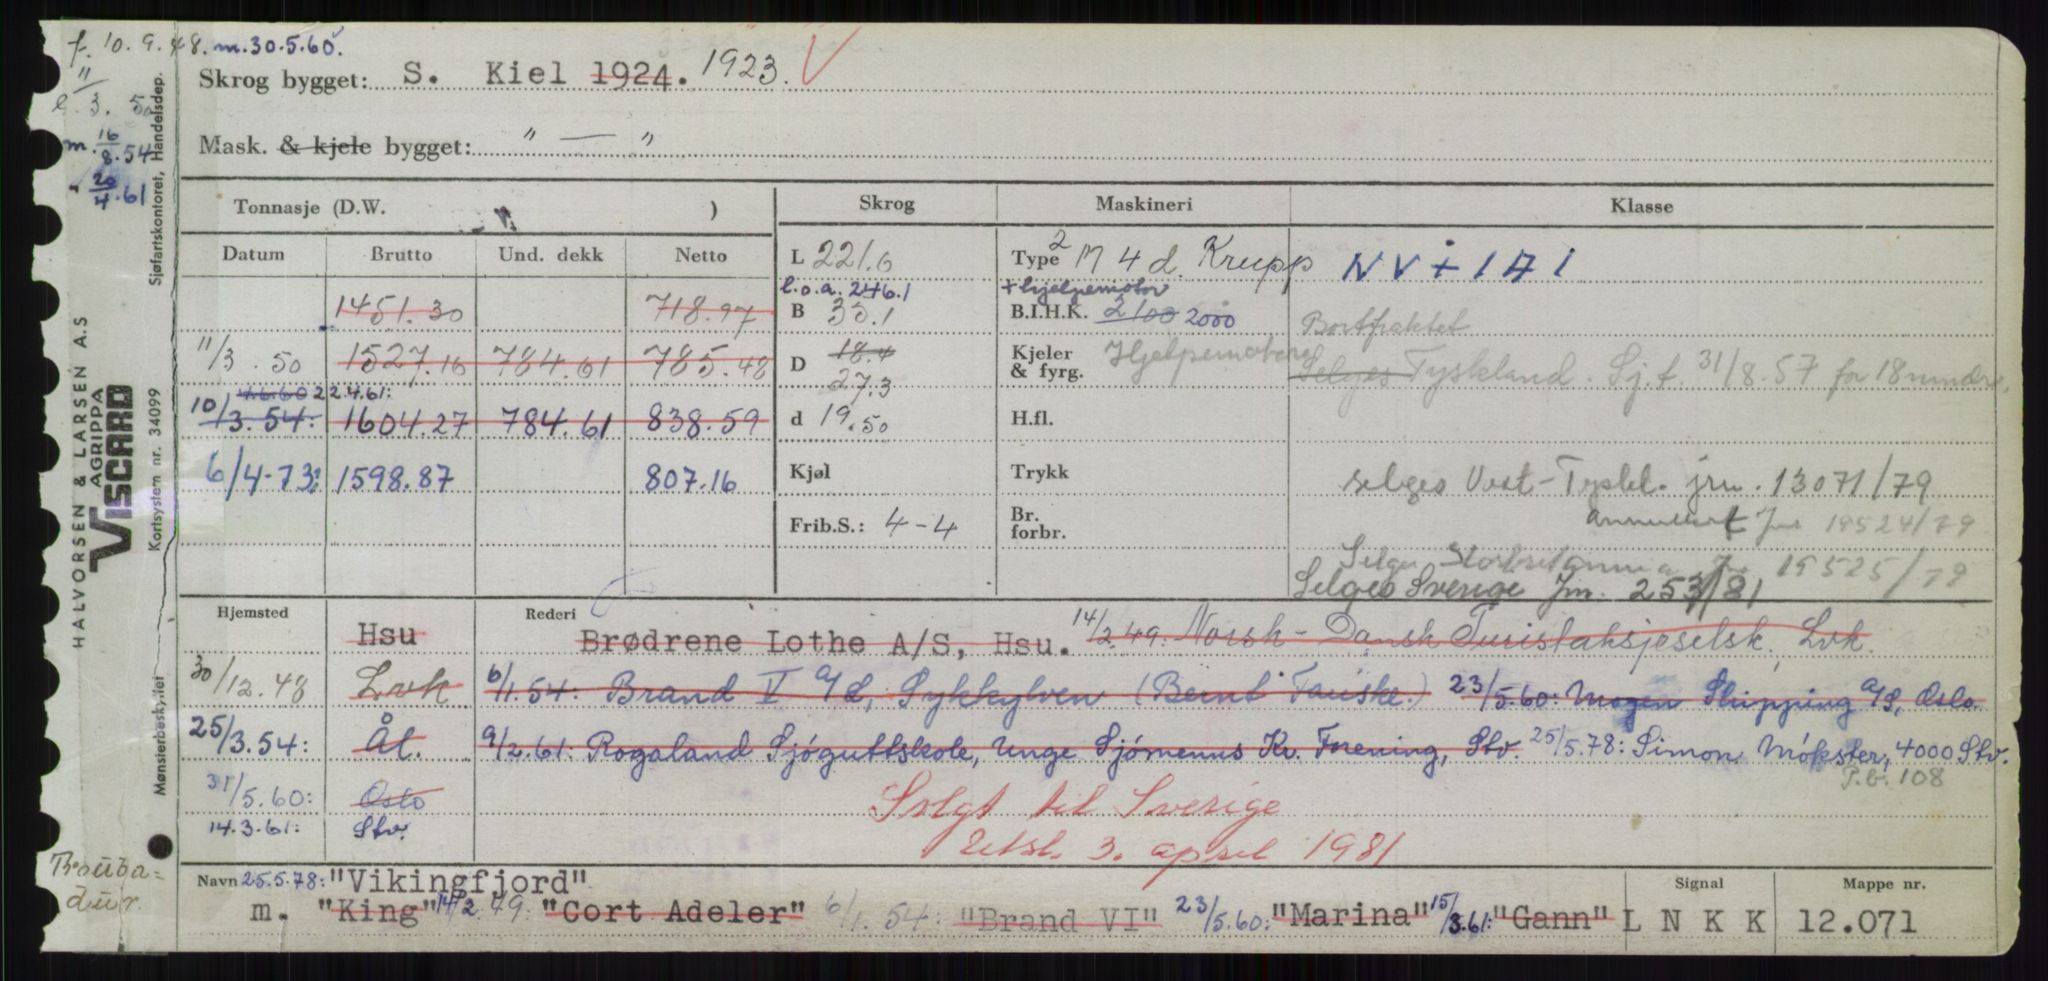 f. 10.9.48. m. 30.5.60.
" e. 3. 50
m. 16/8.54
" 20/4.61
Skrog bygget: S. Kiel 1924. 1923. V
Mask. & kjele bygget: " — "
Tonnasje (D.W. ) Skrog Maskineri Klasse
Datum Brutto Und. dekk Netto L 221.6 Type 2 M 4 d. Krupp NV + 1A1
l.o.a. 246.1 + hjelpemotor
1451.30 718.97 B 35.1 B.I.H.K. 2100 2000 Bortfraktet
11/3.50 1527.16 784.61 785.48 D 18.4 27.3 Kjeler & fyrg. Hjelpemotorer Selges Tyskland. Sj.f. 31/8.57 for 18 mndr.
22.4.61:
10/3.54: 1604.27 784.61 838.59 d 19.50 H.fl.
6/4-73: 1598.87 807.16 Kjøl Trykk selges Vest-Tyskl. jnr. 13071/79
annullert Jnr 19524/79
Frib.S.: 4-4 Br. forbr. Selges Storbritannia Jnr 19525/79
Selges Sverige Jnr. 253/81
Hjemsted Hsu Rederi Brødrene Lothe A/S, Hsu. 14/2.49: Norsk-Dansk Turistaksjeselsk., Lvk.
30/12.48 Lvk 6/1.54: Brand V A/S, Sykkylven (Bernt Tauske.) 23/5.60: Mogen Shipping A/S, Oslo.
25/3.54: Ål. 9/2.61: Rogaland Sjøguttskole, Unge Sjømenns Kr. Forening, Stv. 25/5.78: Simon Møkster, 4000 Stv.
P.b. 108
31/5.60: Oslo Solgt til Sverige
14.3.61: Stv. Utsl. 3. april 1981
Navn 25.5.78: "Vikingfjord" Signal Mappe nr.
m. "King" 14/2 49: "Cort Adeler" 6/1.54: "Brand VI" 23/5.60: "Marina" 15/3.61: "Gann" L N K K 12.071
Trouba=
dur.
HALVORSEN & LARSEN A.S
AGRIPPA
VISCARD
Kortsystem nr. 34099
Sjøfartskontoret, Handelsdep.
Mønsterbeskyttet